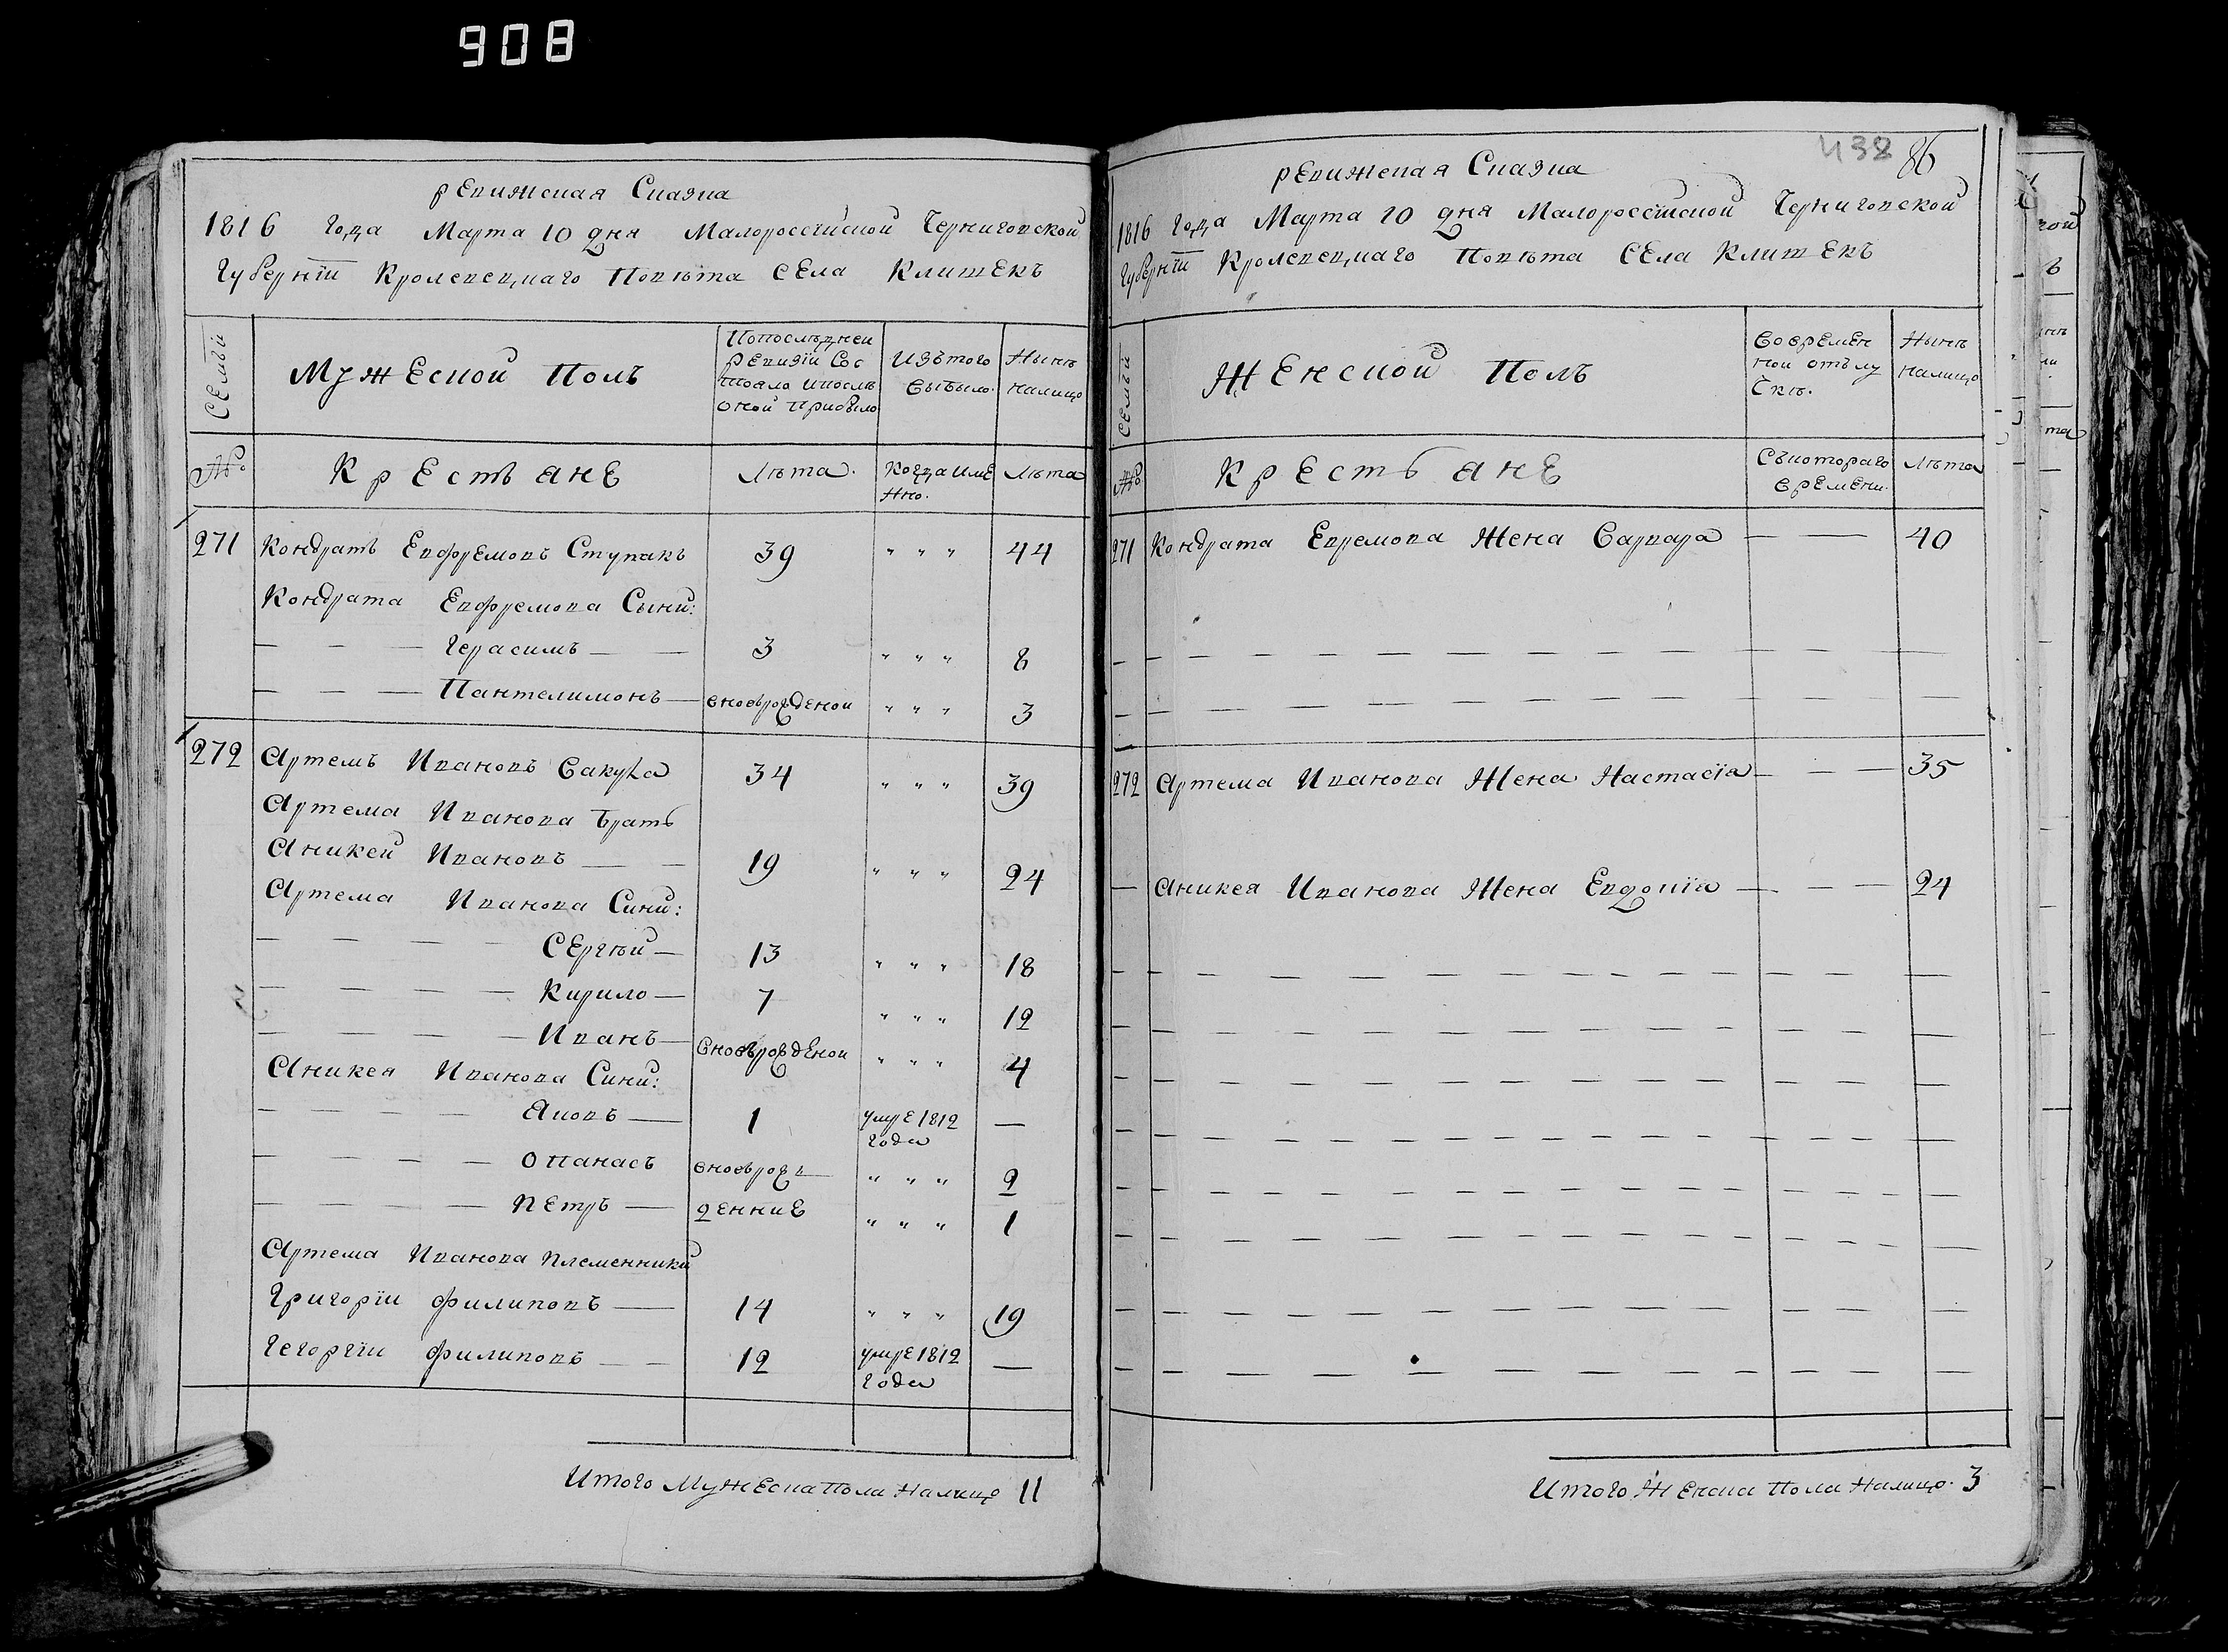 908
ревижская Сказка
1816 года Марта 10 дня Малороссійской Черниговской
Губерніи Кролевецкаго Повѣта Села Клишекъ
Семьи
Мужеской Полъ
Попослѣдней
ревизіи Сос
тояло ипослѣ
оной прибыло
Изътого
выбыло.
Нынѣ
налицо
№
Крестьяне
Лѣта.
Когда име
нно.
Лѣта
271 Кондратъ Евфремовъ Ступакъ 39 " " " 44
Кондрата Евфремова Сыни:
— — — Герасимъ — — 3 " " " 8
— — — Пантелимонъ — вноврожденой " " " 3
272 Артемъ Ивановъ Вакула 34 " " " 39
Артема Иванова Братъ
Аникей Ивановъ — — 19 " " " 24
Артема Иванова Сини:
— — — — Сергѣй — 13 " " " 18
— — — — Кирило — 7 " " " 12
— — — — Иванъ — вноврожденой " " " 4
Аникея Иванова Сини:
— — — — Яковъ — 1 умре 1812 —
года
— — — — Опанасъ вноврож — " " " 2
— — — — Петръ — денние " " " 1
Артема Иванова племенники
Григорій Филиповъ — 14 " " " 19
Гегоргій Филиповъ — — 12 умре 1812 —
года
Итого Мужеска Пола Налицо 11
438 86
ревижская Сказка
1816 года Марта 10 дня Малороссійской Черниговской
Губерніи Кролевецкаго Повѣта Села Клишекъ
Семьи
Женской Полъ
Вовремен
ной отълу
чкѣ.
Нынѣ
налицо
№
Крестьяне
Съкотораго
времени.
Лѣта
271 Кондрата Евремова Жена Варвара — — 40
272 Артема Иванова Жена Настасія — — — 35
— Аникея Иванова Жена Евдокія — — — 24
Итого Женска Пола Налицо. 3